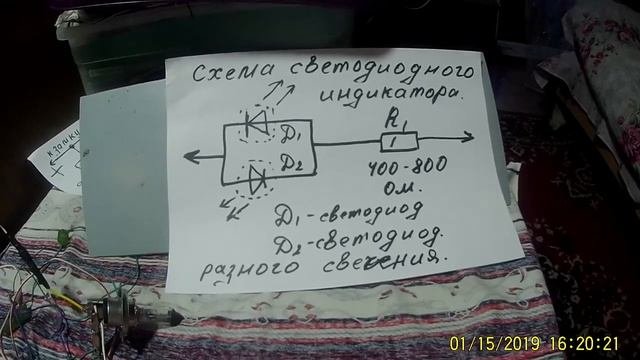 Схема светодиодного
индикатора.
Д1
R1
Д2
400-800
Ом.
Д1-светодиод
Д2-светодиод.
разного свечения.
01/15/2019 16:20:21